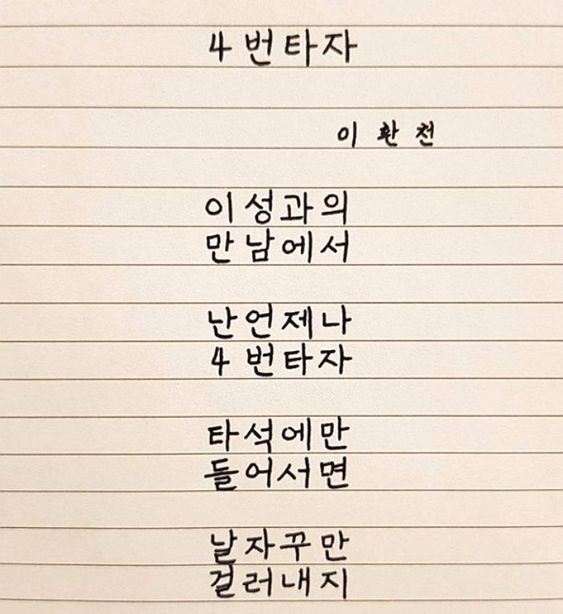 4번타자
이환천
이성과의
만남에서
난언제나
4번타자
타석에만
들어서면
날자꾸만
걸러내지